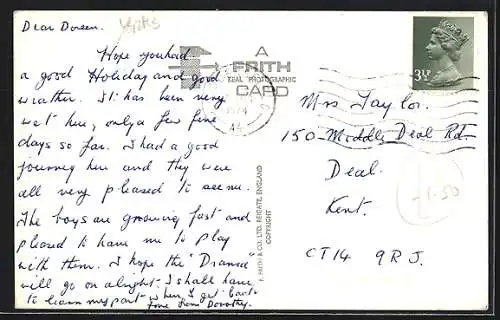 Dear Doreen.
Hope you had
a good Holiday and good
weather. It has been very
wet here, only a few fine
days so far. I had a good
journey here and they were
all very pleased to see me.
The boys are growing fast and
pleased to have me to play
with them. I hope the "Drama"
will go on alright. I shall have
to learn my part when I get back
love from Dorothy.
A
FRITH
REAL PHOTOGRAPHIC
CARD
1974
F. FRITH & CO. LTD. REIGATE, ENGLAND
COPYRIGHT
3½
Mrs Taylor.
150 Middle Deal Rd.
Deal.
Kent.
CT14 9RJ.
1.50